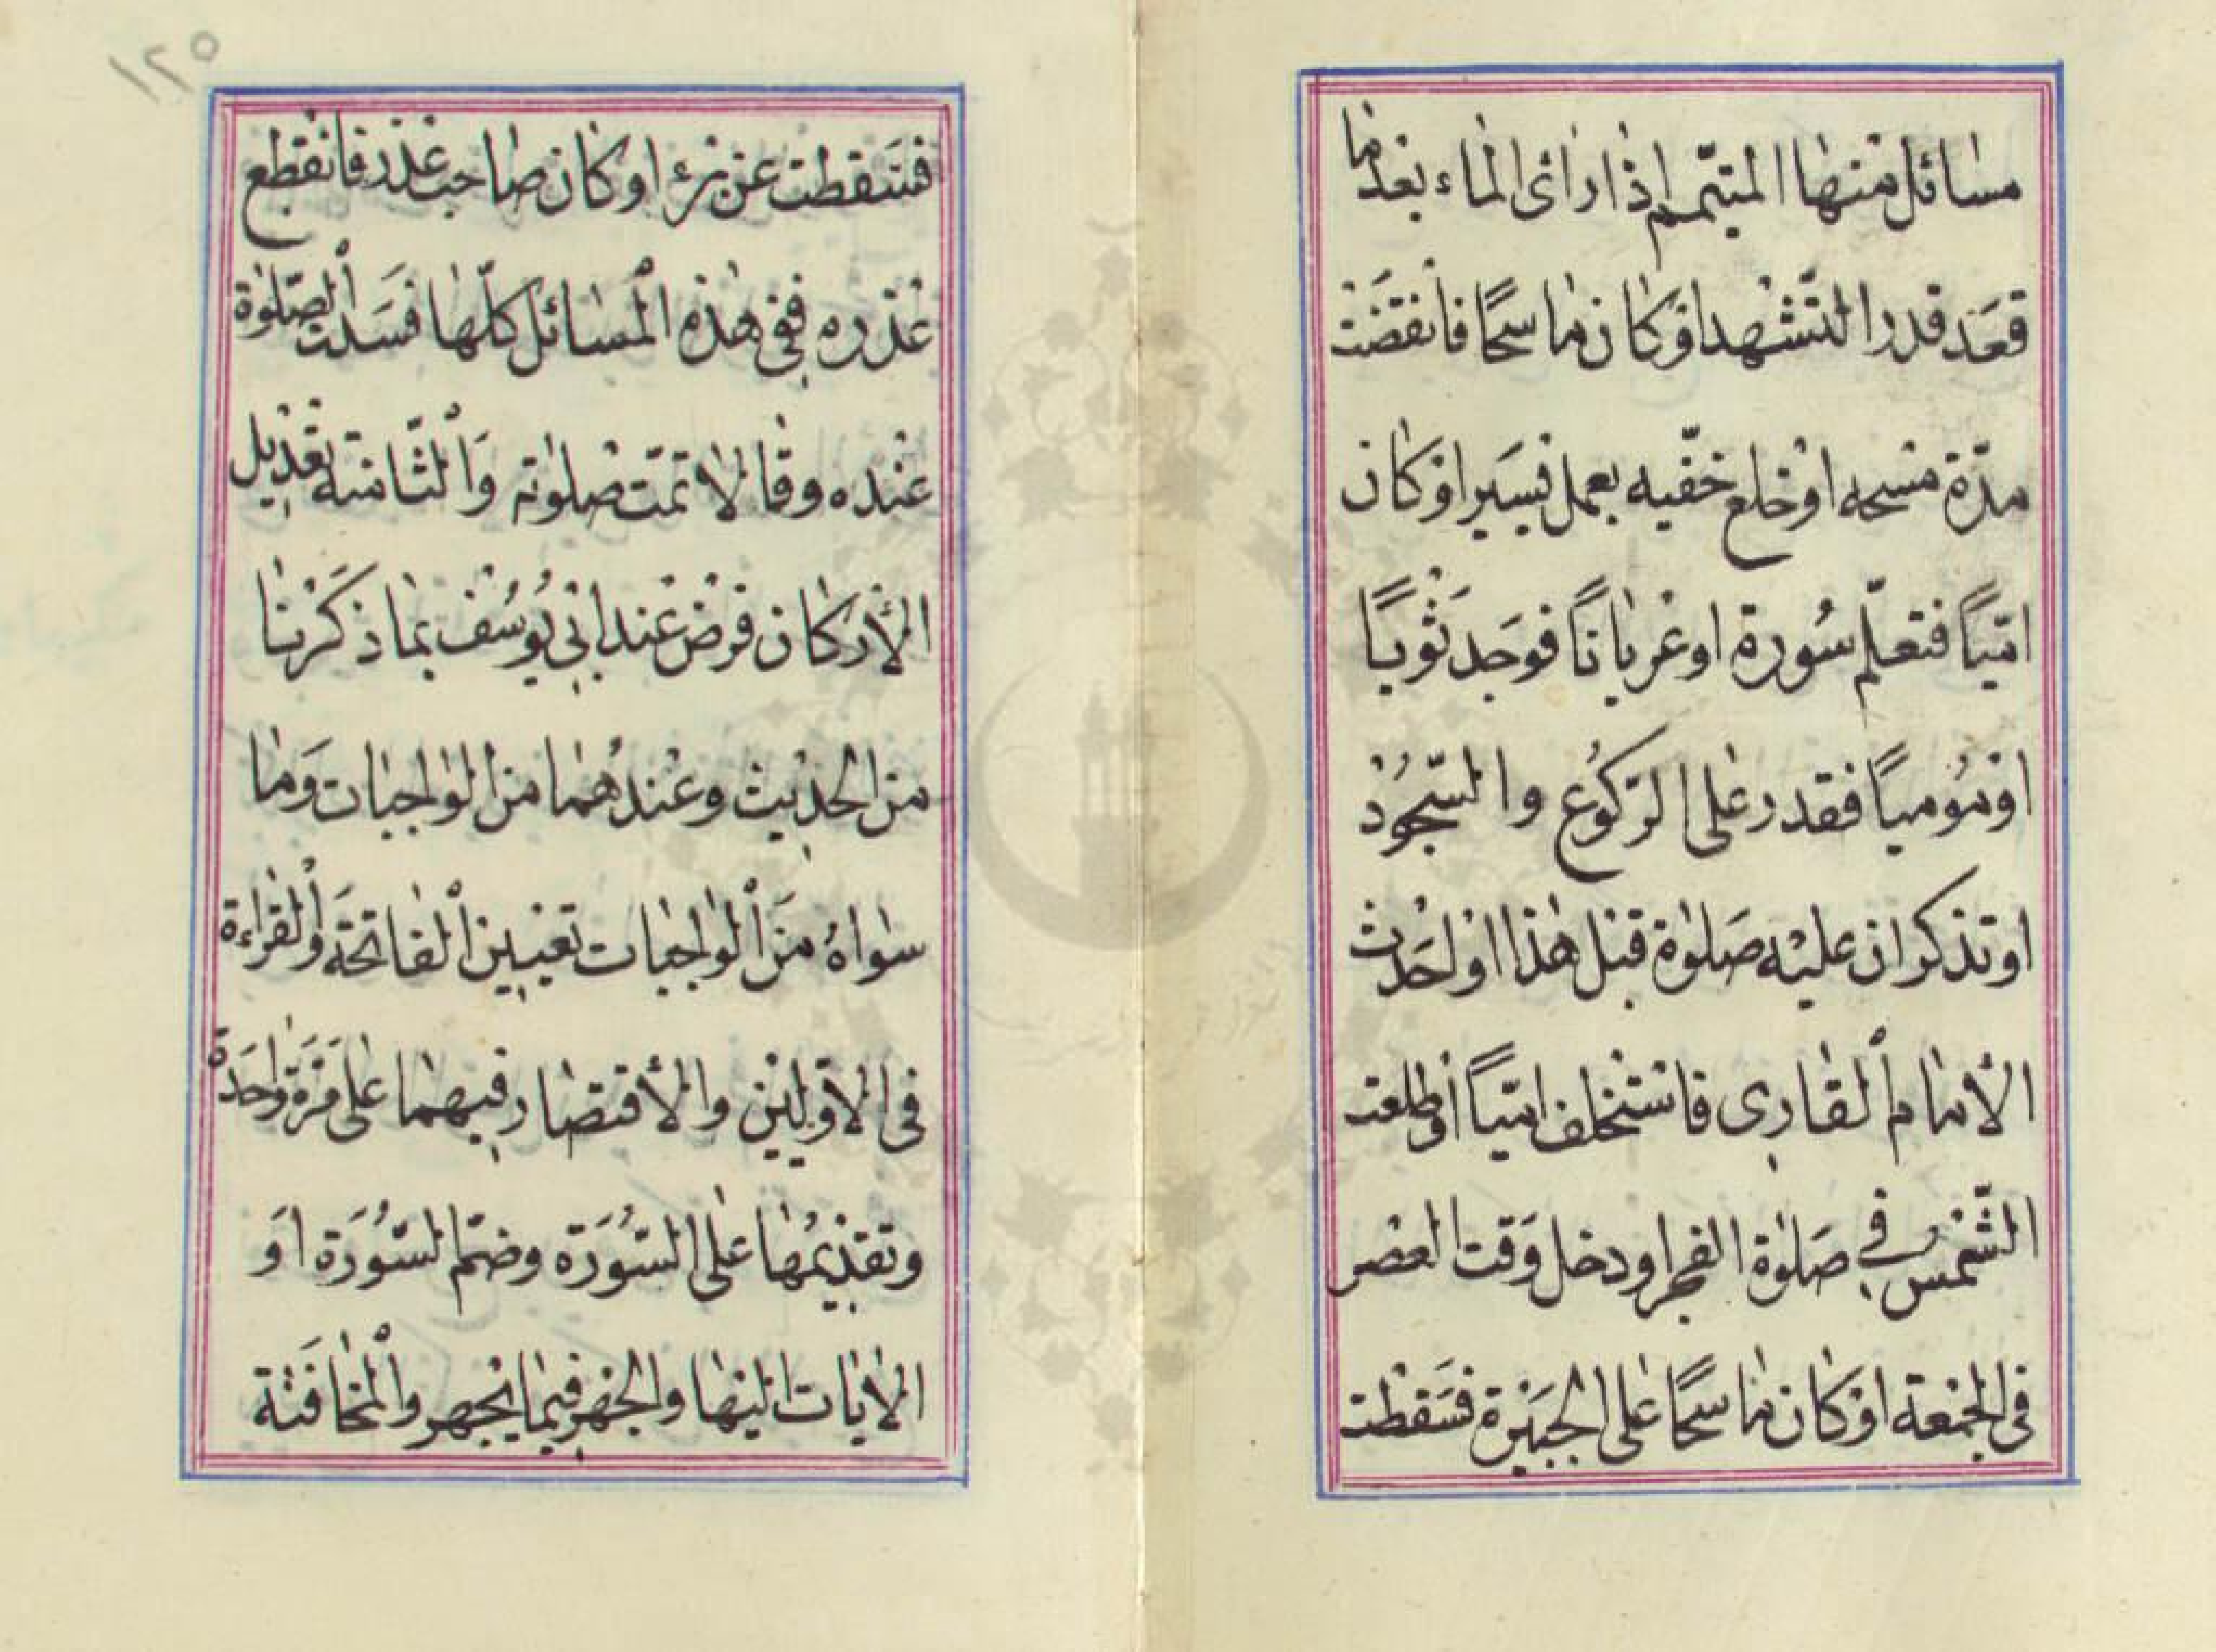 مسائل منها المتيمّم اذا رائ الماء بعد ما
قعَد قدر التّشهد او كان ماسحًا فانقضَت
مدّة مسحه او خلع خفّيه بعمل يسَير او كان
امّياً فتعلّم سُورة او عرياناً فوجَد ثوباً
او مُومياً فقدر على الرّكوُع والسّجُود
او تذكر ان عليه صَلوٰة قبل هٰذا او احَدث
الأمام اْلقارى فاستخلف امّياً أو طلعت
الشّمس في صَلوٰة الفجر او دخل وَقت العصر
فى الجمعة او كان ماسحًا على الجبَيرة فسَقطت
١٢٥
فسَقطت عن برء او كان صاحب عذر فانقطع
عذره ففى هٰذه اْلمسائل كلّها فسَدت اْلصّلوٰة
عنده وقالا تمّت صلوٰته وَاْلثّامنة تعديل
الأركان فرض عند ابى يُوسُف بما ذكَرنا
من الحديث وعندهُما من الواجبات وَما
سواهُ منَ اْلواجبات تعيين اْلفاتحَة واْلقراءة
فى الاوليين والأقتصار فيهما على مَرَة واحَدة
وتقديمُها على السُّورَة وضمّ السُّورَة اَو
الأيات اليها والجهر فيما يجهر واْلمخافَتة